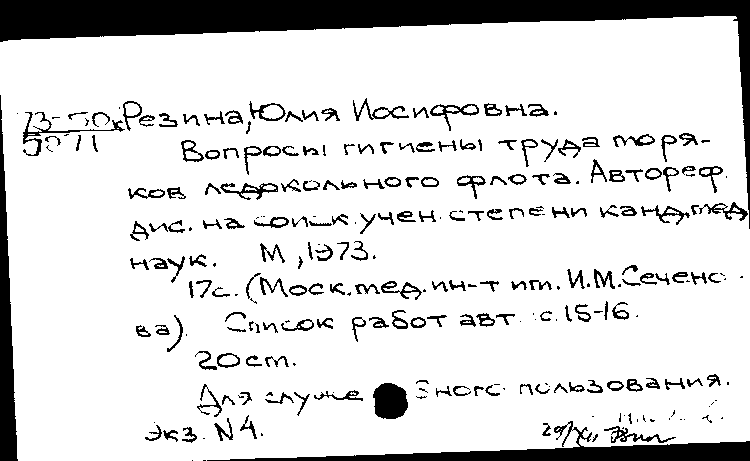 Резина, Юлия Иосифовна.
Вопросы гигиены труда моря-
ков ледокольного флота. Автореф.
дис. на соиск. учен. степени канд. мед.
наук. М., 1973.
17с. (Моск. мед. ин-т им. И.М. Сечено-
ва). Список работ авт. с. 15-16.
20 см.
Для служебного пользования.
Экз. N4.